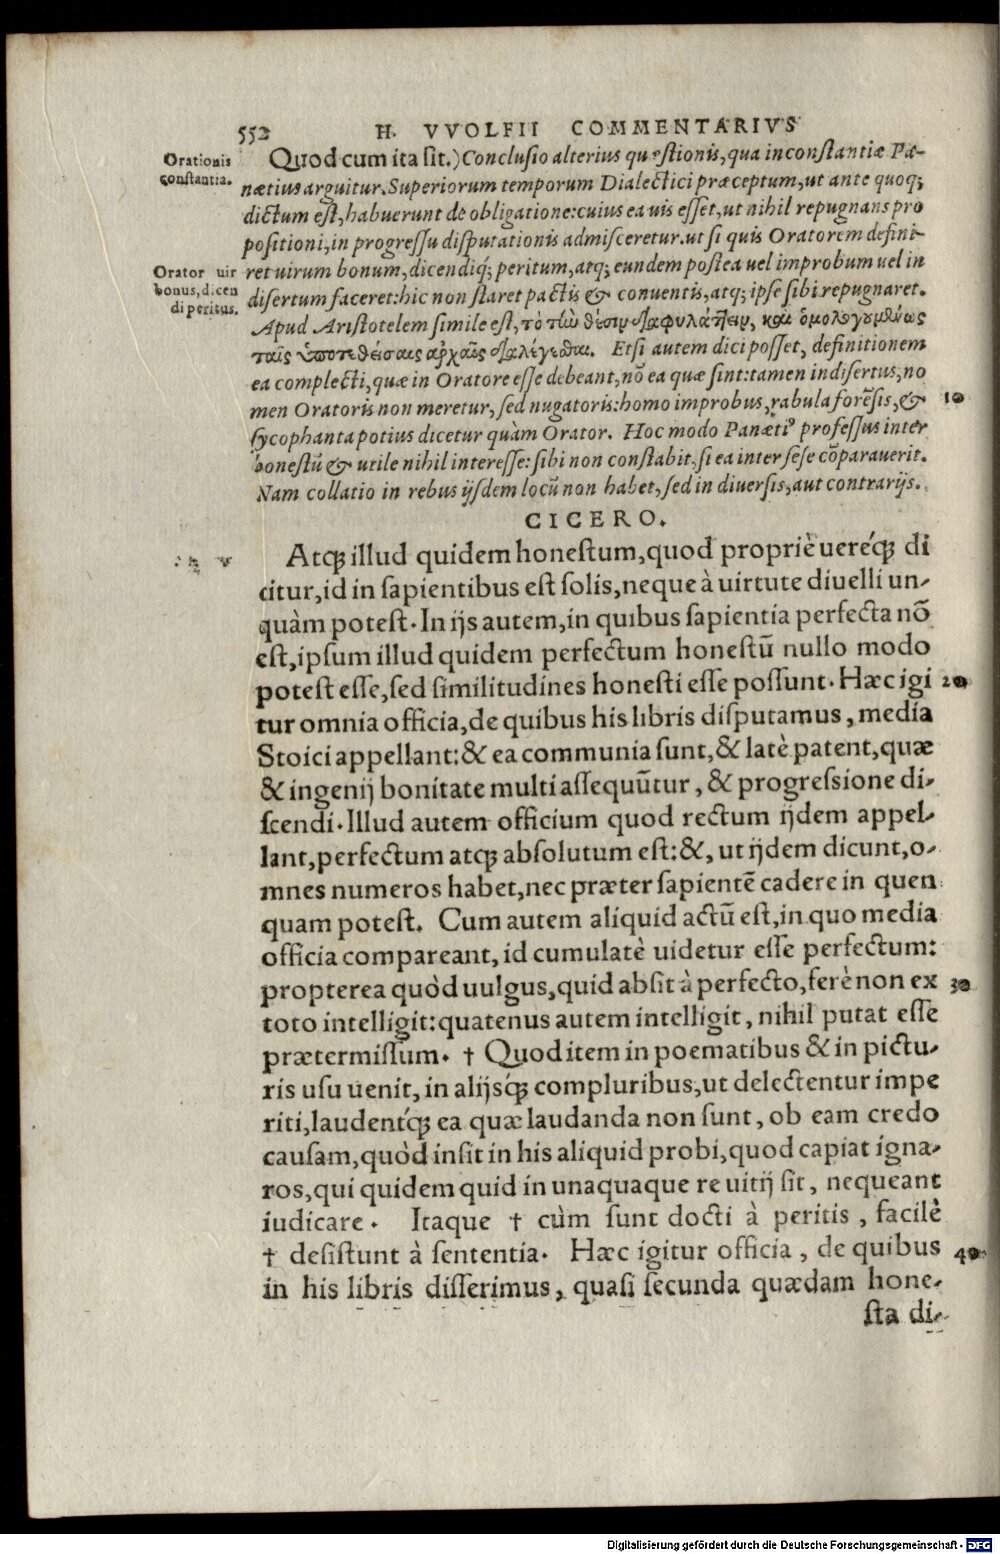 552 H. VVOLFII COMMENTARIVS
Orationis
constantia.
Quod cum ita sit.) Conclusio alterius quæstionis, qua inconstantiæ Pa-
nætius arguitur. Superiorum temporum Dialectici præceptum, ut ante quoq;
dictum est, habuerunt de obligatione: cuius ea uis esset, ut nihil repugnans pro
positioni, in progressu disputationis admisceretur. ut si quis Oratorem defini-
Orator uir
bonus, dicen
di peritus.
ret uirum bonum, dicendiq́; peritum, atq; eundem postea uel improbum uel in
disertum faceret: hic non staret pactis & conuentis, atq; ipse sibi repugnaret.
Apud Aristotelem simile est, τὸ τὴν θέσιν διαφυλάττειν, καὶ ὁμολογουμένως
ταῖς ὑποτεθείσαις ἀρχαῖς διαλέγεσθαι. Etsi autem dici posset, definitionem
ea complecti, quæ in Oratore esse debeant, nō ea quæ sint: tamen indisertus, no
men Oratoris non meretur, sed nugatoris: homo improbus, rabula forēsis, & 10
sycophanta potius dicetur quàm Orator. Hoc modo Panæti⁹ professus inter
honestū & utile nihil interesse: sibi non constabit, si ea inter sese cōparauerit.
Nam collatio in rebus ijsdem locū non habet, sed in diuersis, aut contrarijs.
CICERO.
Atq; illud quidem honestum, quod propriè uereq́; di
citur, id in sapientibus est solis, neque à uirtute diuelli un-
quàm potest. In ijs autem, in quibus sapientia perfecta nō
est, ipsum illud quidem perfectum honestū nullo modo
potest esse, sed similitudines honesti esse possunt. Hæc igi 20
tur omnia officia, de quibus his libris disputamus, media
Stoici appellant: & ea communia sunt, & latè patent, quæ
& ingenij bonitate multi assequūtur, & progressione di-
scendi. Illud autem officium quod rectum ijdem appel-
lant, perfectum atq; absolutum est: &, ut ijdem dicunt, o-
mnes numeros habet, nec præter sapientē cadere in quen
quam potest. Cum autem aliquid actū est, in quo media
officia compareant, id cumulatè uidetur esse perfectum:
propterea quòd uulgus, quid absit à perfecto, ferè non ex 30
toto intelligit: quatenus autem intelligit, nihil putat esse
prætermissum. † Quod item in poematibus & in pictu-
ris usu uenit, in alijsq́; compluribus, ut delectentur impe
riti, laudentq́; ea quæ laudanda non sunt, ob eam credo
causam, quòd insit in his aliquid probi, quod capiat igna-
ros, qui quidem quid in unaquaque re uitij sit, nequeant
iudicare. Itaque † cùm sunt docti à peritis, facilè
† desistunt à sententia. Hæc igitur officia, de quibus 40
in his libris disserimus, quasi secunda quædam hone-
sta di-
Digitalisierung gefördert durch die Deutsche Forschungsgemeinschaft - DFG